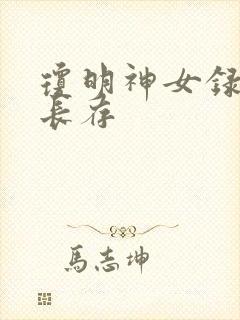 瓊明神女錄
長存
馬志坤